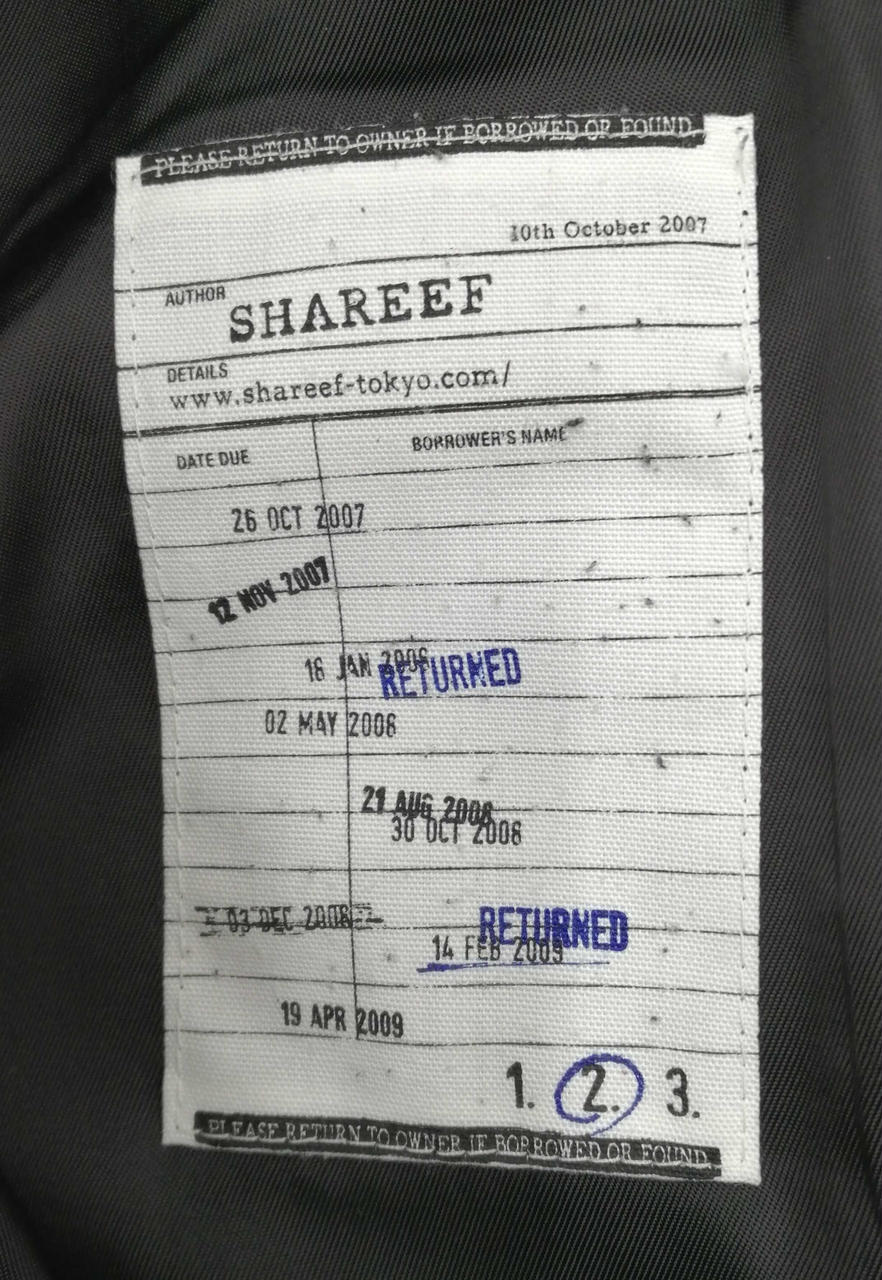 PLEASE RETURN TO OWNER IF BORROWED OR FOUND
10th October 2007
AUTHOR SHAREEF
DETAILS
www.shareef-tokyo.com/
DATE DUE BORROWER'S NAME
26 OCT 2007
12 NOV 2007
16 JAN 2008 RETURNED
02 MAY 2008
21 AUG 2008
30 OCT 2008
03 DEC 2008 RETURNED
14 FEB 2009
19 APR 2009
1. 2. 3.
PLEASE RETURN TO OWNER IF BORROWED OR FOUND